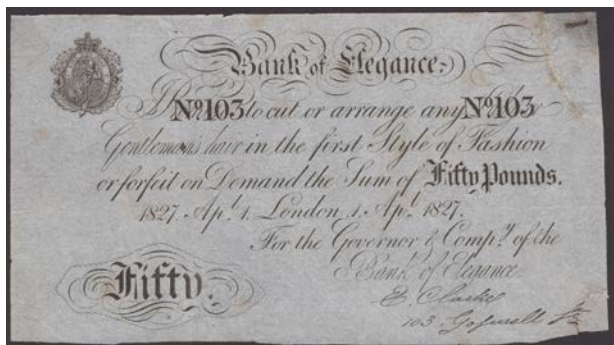 Bank of Elegance.
I P Nº103 to cut or arrange any Nº103
Gentlemans hair in the first Style of Fashion
or forfeit on Demand the Sum of Fifty Pounds.
1827. Apl. 1. London, 1. Apl. 1827.
For the Governor & Compy. of the
Bank of Elegance
Fifty.
E. Clarke
103 Goswell